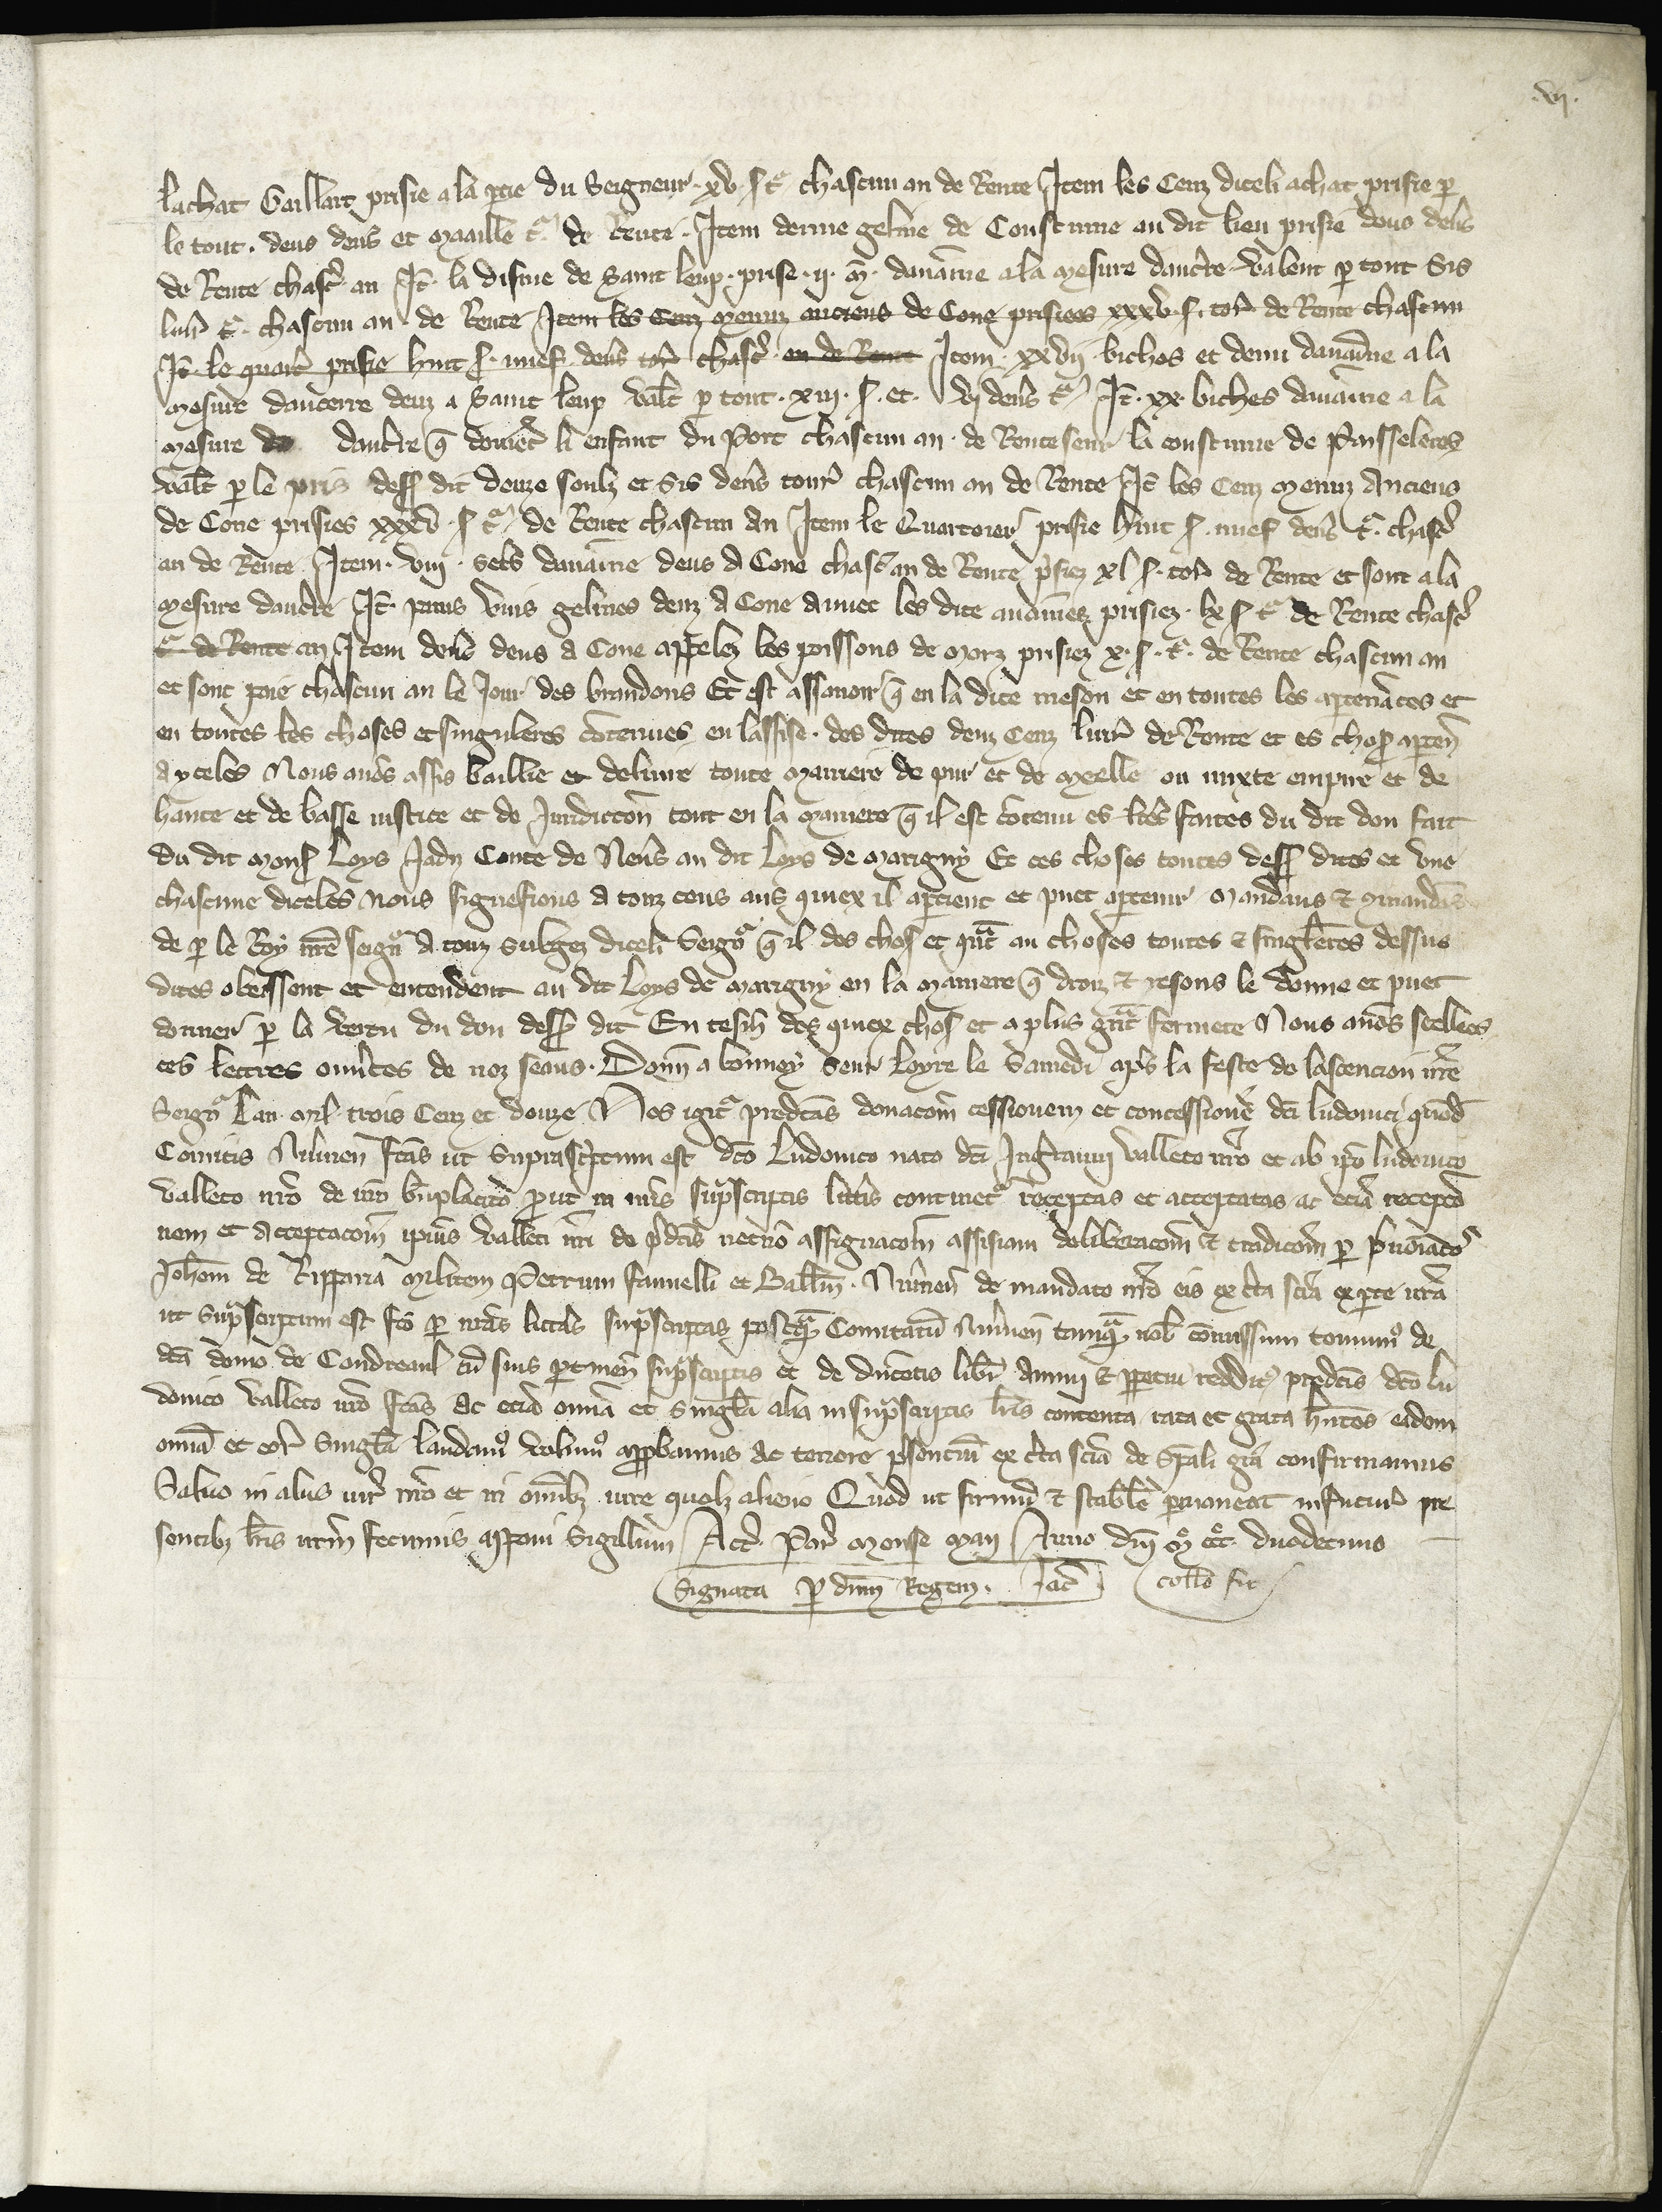 .vij.
lachat Gaillart prisie a la ptie du Seigneur .xv. s t chascun an de Rente Item les Cenz diceli achat prisie p
le tout . deus den's et maaille t. de Rente . Item demie geline de Coustume au dit lieu prisie deus den's
de Rente chasc' an It. la disme de Saint leup . prise . ij. m. davaine a la mesure daucre valent p tout Sis
livr' t. chascun an de Rente Item les Cenz menuz anciens de Cone prisiees xxxv. s. tor' de Rente chascun
It. le quart' prisie huit s. nuef den's tor' chasc' an de Rente Item . xxvij . bichos et demi davaine a la
mesure daucerre deuz a Saint leup val't p tout . xiij . s . et . vj den's t. It. xx. biches davaine a la
mesure de daucre q doivent li enfant du Port chascun an de Rente seur la coustume de Paisseletes
val't p le pris dess' dit douze soulz et Sis den's tour' chascun an de Rente It. les Cenz menuz Anciens
de Cone prisies xxxv . s t. de Rente chascun an Item le Quartoier prisie huit s. nuef den's t. chasc'
an de Rente . Item . viij . sets davaine deus a Cone chasc' an de Rente p'siez xl s. tor' de Rente et sont a la
mesure daucre It. pains vins gelines deuz a Cone avuec les dite avainez prisiez . lx s t. de Rente chasc'
t. de Rente an Item den's deus a Cone appelez les poissons de morz prisiez x. s. t. de Rente chascun an
et sont paie chascun an le Jour des brandons Et est assavoir q en la dite meson et en toutes les apten'ces et
en toutes les choses et singuleres co'tenues en lassise . des dites deuz Cenz livr' de Rente et es chos' apten'
a yceles Nous avo's assis baillie et delivre toute maniere de pur et de melle ou mixte empire et de
haute et de basse justice et de Juridicion tout en la maniere q il est co'tenu es l'res faites du dit don fait
du dit mons' Loys Jadis Conte de Nev's au dit Loys de marigny Et ces choses toutes dess' dites et une
chascune diceles nous signefions a touz ceus aus quiex il aptient et puet aptenir mandans & co'mandans
de p le Roy n're seign' a touz subgez diceli Seign' q il des chos' et q'nt au choses toutes & singleres dessus
dites obeissent et entendent au dit Loys de marigny en la maniere q droiz & resons le donne et puet
donner p la vertu du don dess' dit En tesm' des quiex chos' et a plus g'nt fermete Nous avo's seellees
ces lettres ouv'tes de noz seaus . Donn' a bonney seur Loyre le Samedi ap's la feste de lascencion n're
Seign' Lan mil trois Cenz et douze Nos igit' predc'as donac'om cessionem et concessione' dc'i ludovici quo'd'
Comitis Niv'nen' fc'as ut Suprasc'ptum est dc'o Ludovico nato dc'i Ing'ranni valleto n'ro et ab ip'o ludovico
valleto n'ro de n'ro b'nplacito p'ut in n'ris sup'scriptis litt'is continet' receptas et acceptatas ac ecia' recepc'o
nem et acceptac'om ip'ius valleti n'ri de p'dc'is necno' assignac'om assisiam deliberac'om & tradic'om p p'no'iatos
Joh'em de Ripparia militem Petrum fauuelli et Ball'm . Niv'nen' de mandato n'ro eis ex c'ta sc'ia ex pte n'ra
ut sup'scriptum est fc'o p n'ras litt'as sup'scriptas postq'm Comitatu' Niv'nen' tanq'm nob' co'missum tenuim' de
dc'a domo de Condreaul cu' suis ptinen' sup'scriptis et de ducentis libr' annui & ppetui reddit' predc'is dc'o lu
dovico valleto n'ro fc'as ac ecia' omnia et singl'a alia in sup'scriptis l'ris contenta rata et grata h'ntes eadem
omnia et eor' Singl'a laudam' volum' approbamus ac tenore p'senciu' ex c'ta sc'ia de sp'ali gr'a confirmamus
Salvo in aliis jur' n'ro et in omnibz jure quolz alieno Quod ut firmu' & stabile pmaneat in futur' pre
sentibz l'ris n'rm fecimus apponi Sigillum Act' Par' mense maij Anno d'ni m ccc duodecimo
Signata p d'nm Regem . Jac' coll'o fit